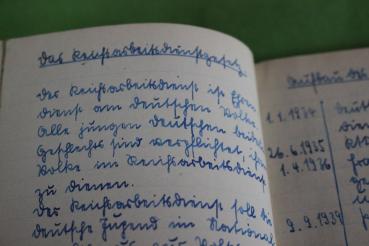 Das Reichsarbeitsdienstgesetz.
Der Reichsarbeitsdienst ist Ehren-
dienst am Deutschen Volke.
Alle jungen Deutschen beider
Geschlechts sind verpflichtet, ihrem
Volke im Reichsarbeitsdienst
zu dienen.
Der Reichsarbeitsdienst soll die
deutsche Jugend im National
Aufbau des
1.1.1934
26.6.1935
1.4.1936
9.9.1939